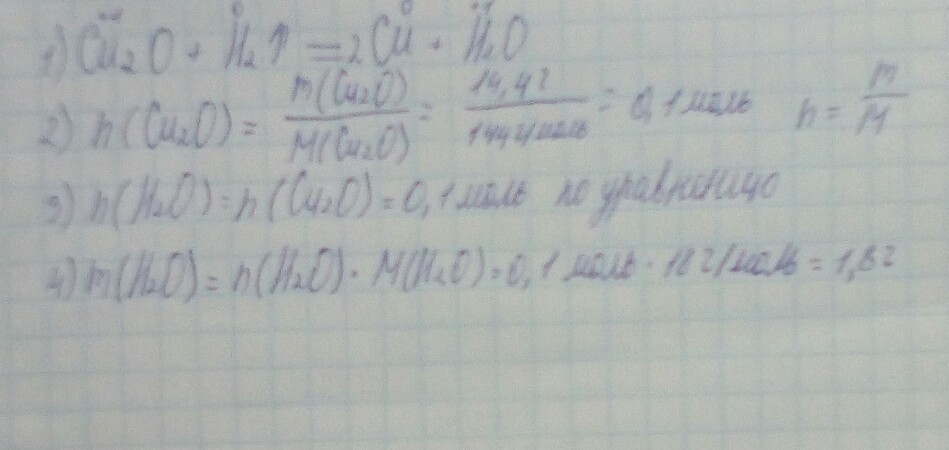 1) Cu₂O + H₂↑ = 2Cu + H₂O
2) n(Cu₂O) = m(Cu₂O) / M(Cu₂O) = 14,4г / 144г/моль = 0,1 моль n = m / M
3) n(H₂O) = n(Cu₂O) = 0,1 моль по уравнению
4) m(H₂O) = n(H₂O) · M(H₂O) = 0,1 моль · 18 г/моль = 1,8г